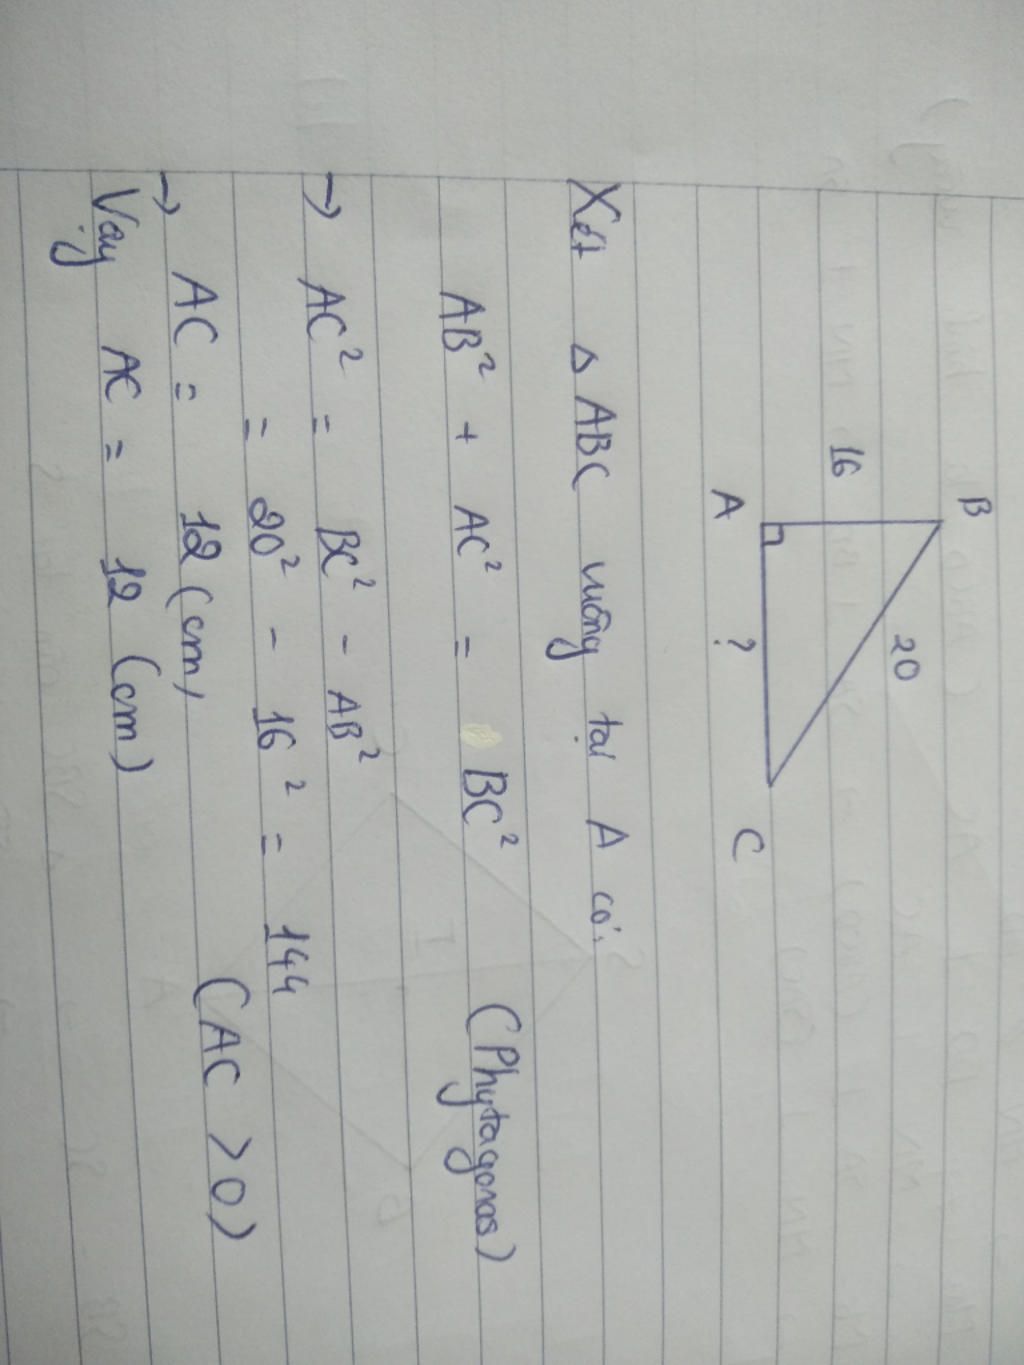 B
16
20
A
?
C
Xét △ ABC vuông tại A có:
AB² + AC² = BC² (Phytagoras)
→ AC² = BC² - AB²
= 20² - 16² = 144
→ AC = 12 (cm) (AC > 0)
Vậy AC = 12 (cm)